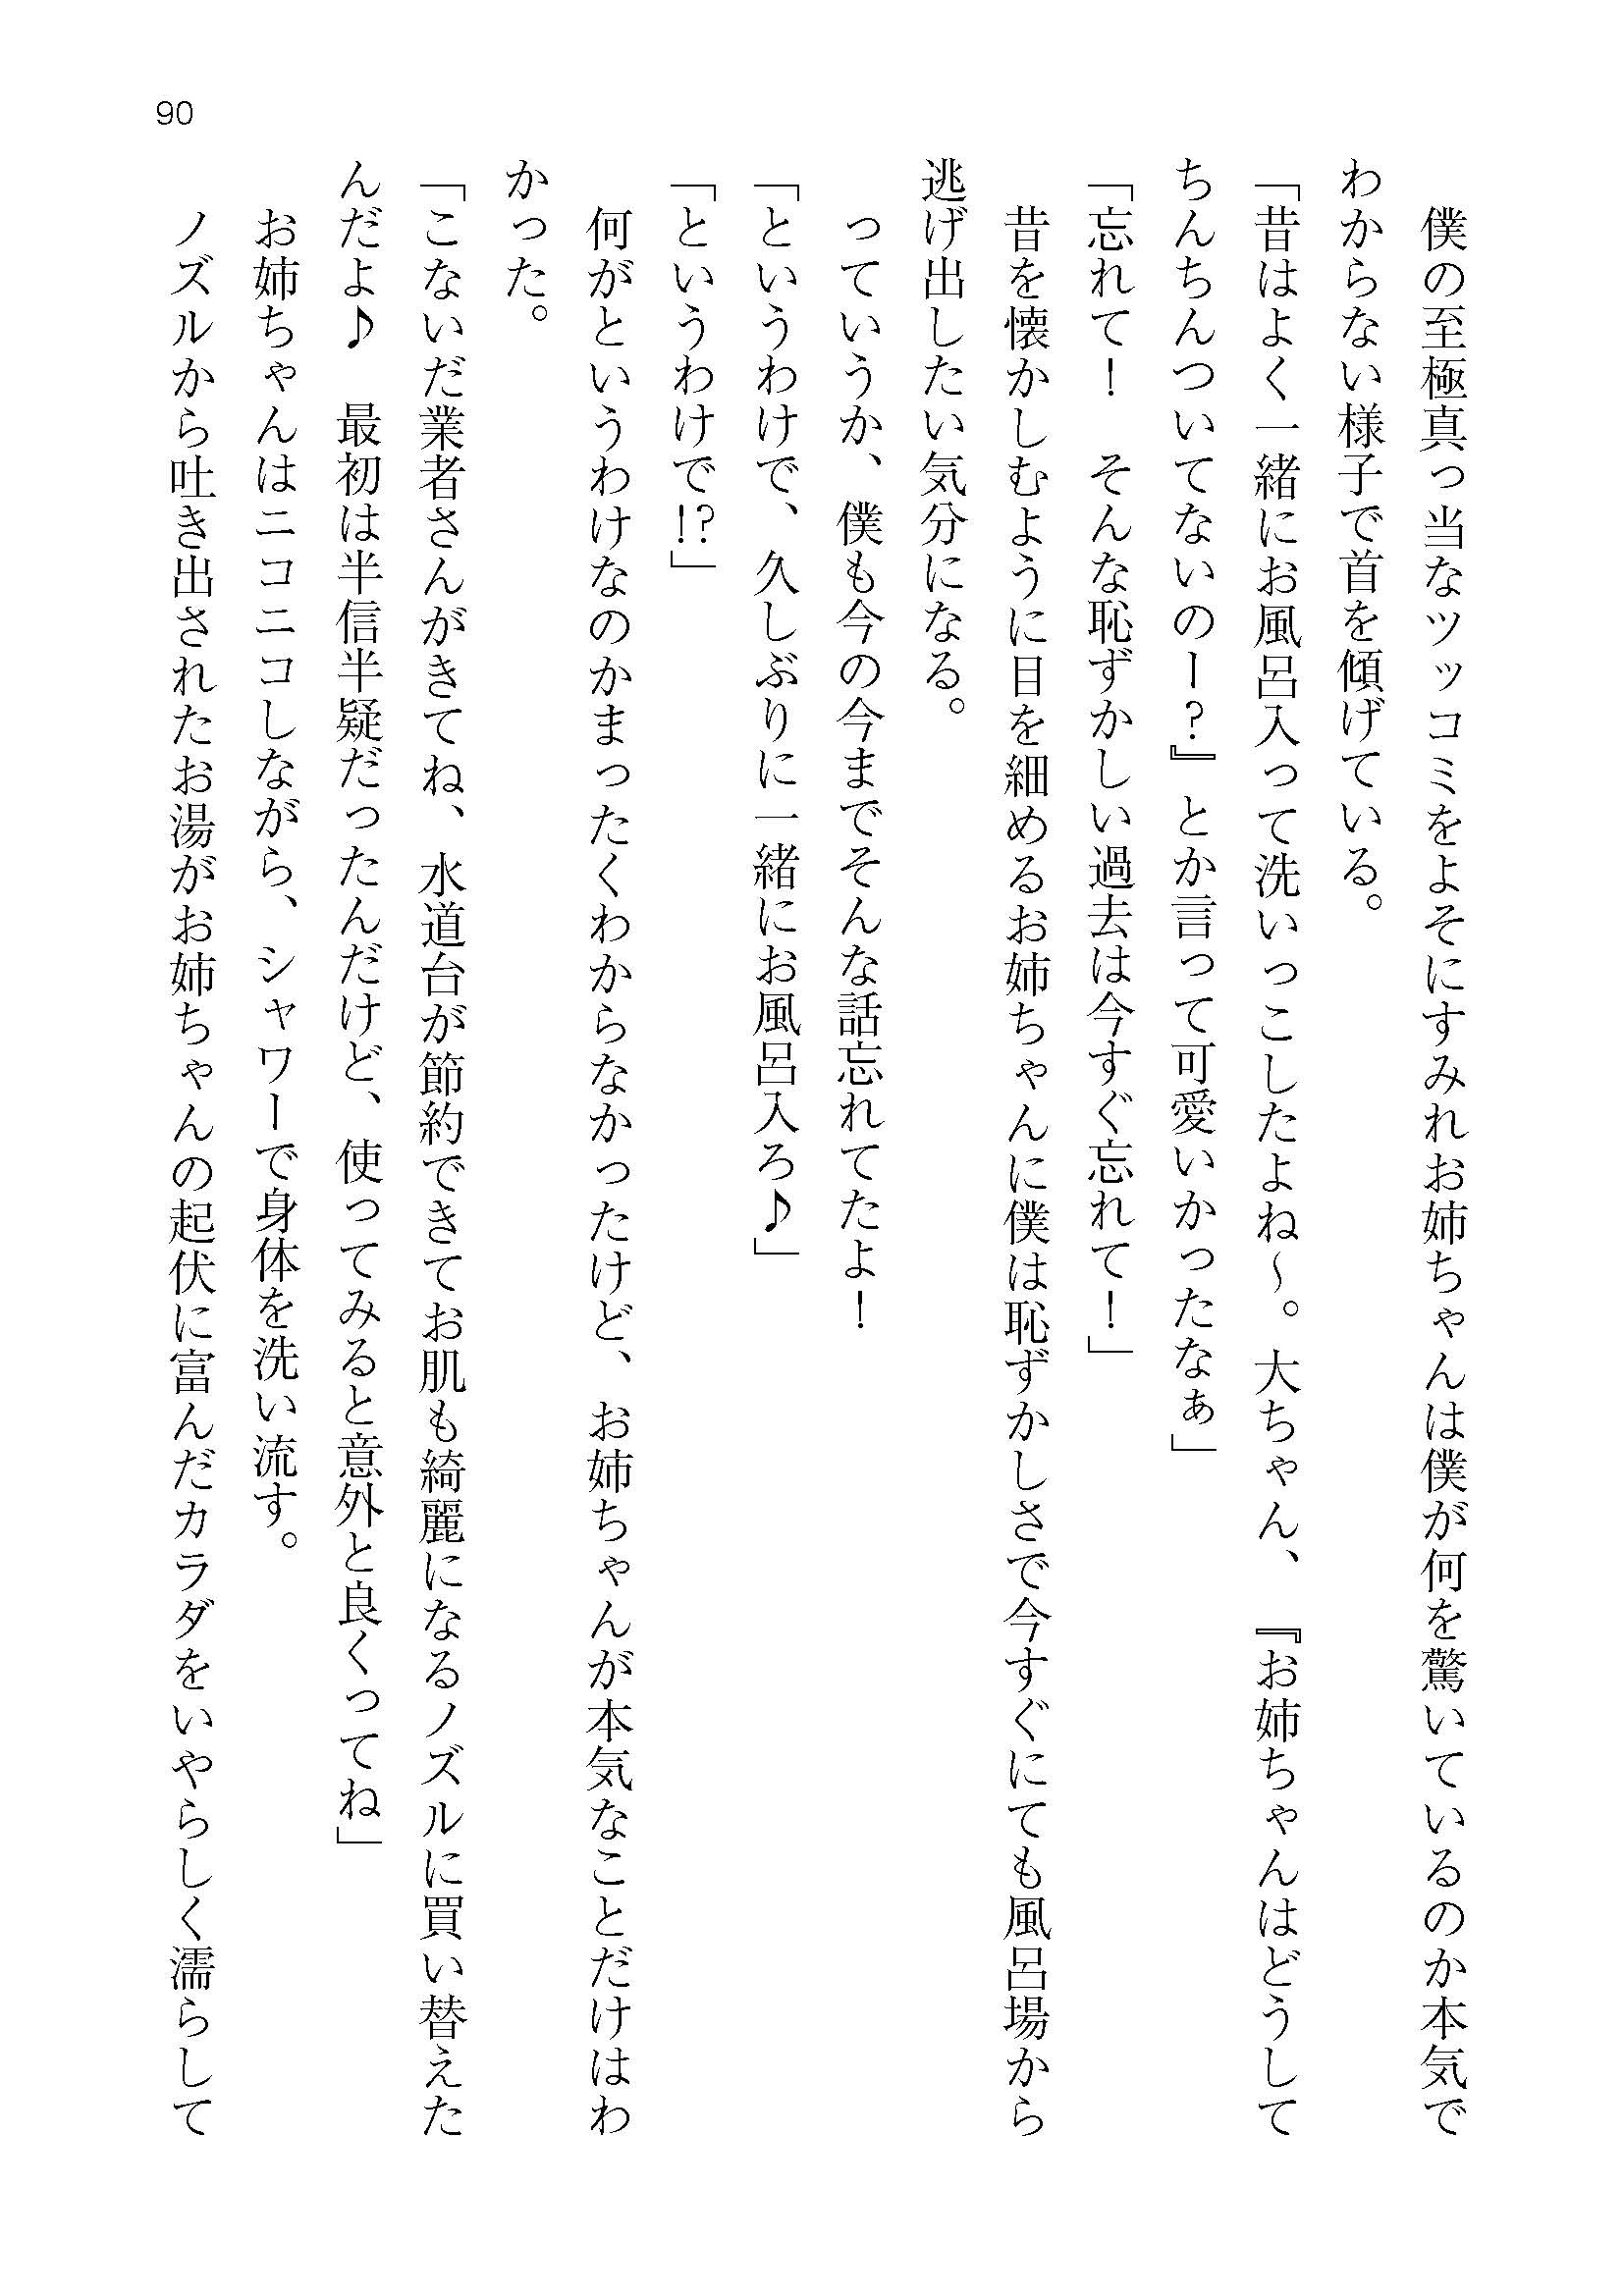 90
　僕の至極真っ当なツッコミをよそにすみれお姉ちゃんは僕が何を驚いているのか本気で
わからない様子で首を傾げている。
「昔はよく一緒にお風呂入って洗いっこしたよね～。大ちゃん、『お姉ちゃんはどうして
ちんちんついてないのー？』とか言って可愛いかったなぁ」
「忘れて！　そんな恥ずかしい過去は今すぐ忘れて！」
　昔を懐かしむように目を細めるお姉ちゃんに僕は恥ずかしさで今すぐにても風呂場から
逃げ出したい気分になる。
　っていうか、僕も今の今までそんな話忘れてたよ！
「というわけで、久しぶりに一緒にお風呂入ろ♪」
「というわけで!?」
　何がというわけなのかまったくわからなかったけど、お姉ちゃんが本気なことだけはわ
かった。
「こないだ業者さんがきてね、水道台が節約できてお肌も綺麗になるノズルに買い替えた
んだよ♪　最初は半信半疑だったんだけど、使ってみると意外と良くってね」
　お姉ちゃんはニコニコしながら、シャワーで身体を洗い流す。
　ノズルから吐き出されたお湯がお姉ちゃんの起伏に富んだカラダをいやらしく濡らして